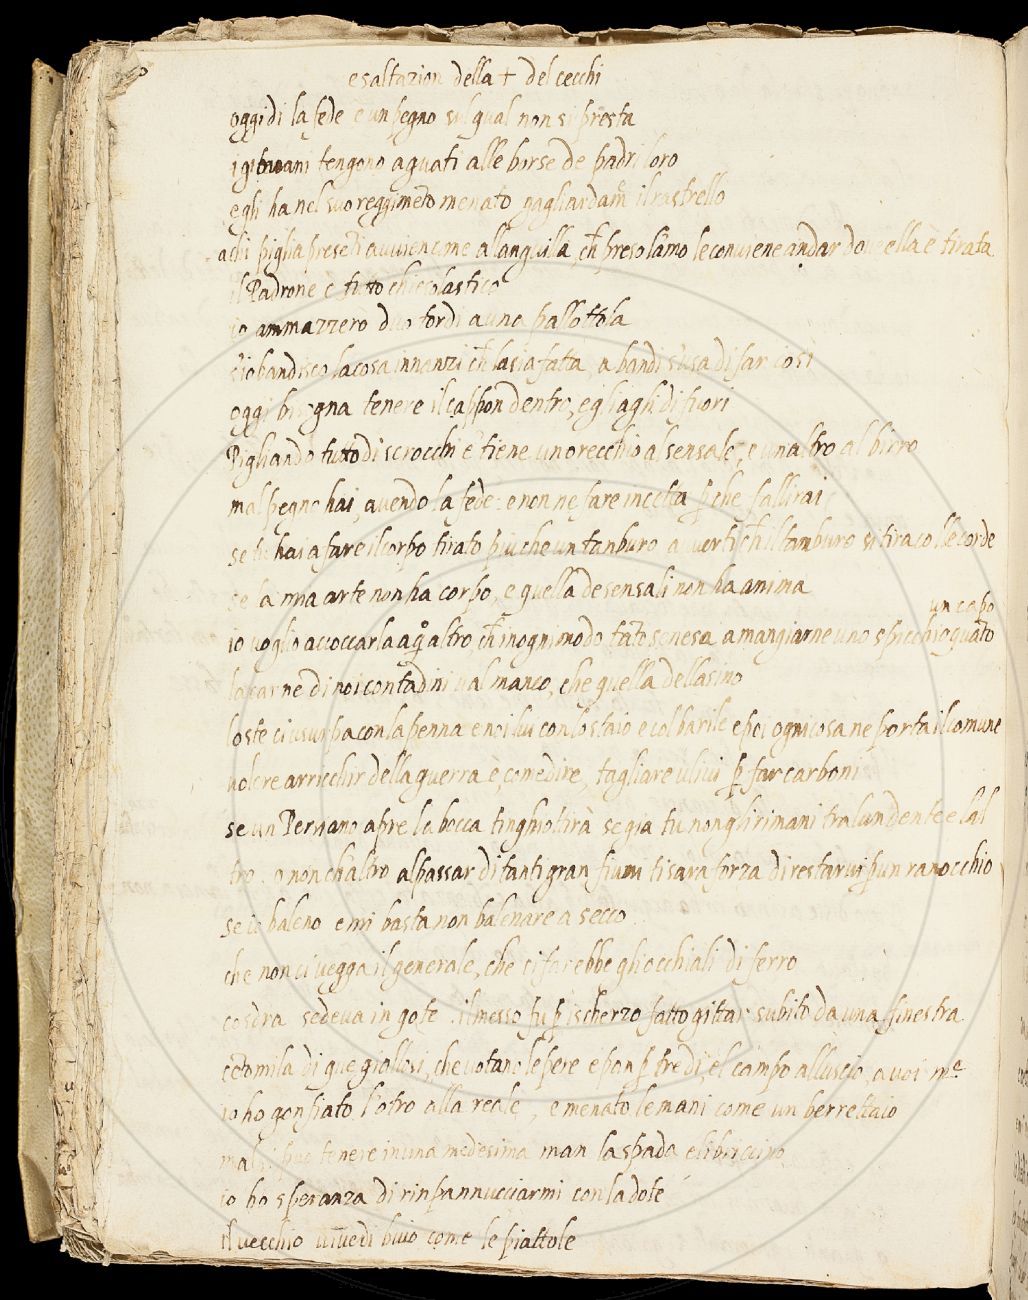 esaltazion della + del cecchi
oggidi la fede è un pegno sul qual non si presta
i giovani tengono aguati alle borse de padri loro
egli ha nel suo reggimẽto menato gagliardamẽ il rastrello
a chi piglia preseti avvien come all anguilla, ch̃ preso lamo le conviene andar dove ella è tirata
il Padrone è tutto
io ammazzero duo tordi a una pallottola
s'io bandisco la cosa innanzi ch̃ la sia fatta, a bandi s'usa di far cosi
oggi bisogna tenere il cappon dentro, e gli agli di fuori
Pigliando tutto di scrocchi e tiene un orecchio al sensale, e un altro al birro
mal pegno hai, avendo la fede: e non ne fare incetta p che fallirai
se tu hai a fare il corpo tirato piu che un tamburo avverti ch̃ il tamburo si tira colle corde
se la mia arte non ha corpo, e quella de sensali non ha anima
un capo
io voglio accoccarla a qlͦ altro, ch̃ in ogni modo tãto se nesa a mangiarne uno spicchio quãto
la carne di noi contadini val manco, che quella dell asino
l oste ci usurpa con la penna e noi lui con lo staio e col barile e poi ogni cosa ne porta il comune
volere arricchir della guerra è, come dire, tagliare ulivi p far carboni
se un Peruano apre la bocca tinghiottirà se gia tu non gli rimani tra l un dente e l al
tro. o non ch altro al passar di tanti gran fiumi ti sara forza di restarvi p un ranocchio
se io baleno e mi basta non balenare a secco
che non ci vegga il generale, che ci farebbe gli occhiali di ferro
sedeva in gote. il messo fu p ischerzo fatto gittar subito da una finestra
ottomila di que giallosi, che votano le pere e pon p tre dì, el campo alluscio, a voi mͤ
io ho gonfiato l otro alla reale, e menato le mani come un berrettaio
mal si puo tenere in una medesima man la spada e libriccino
io ho speranza di rinpannucciarmi con la dote
il vecchio vive di buio come le piattole